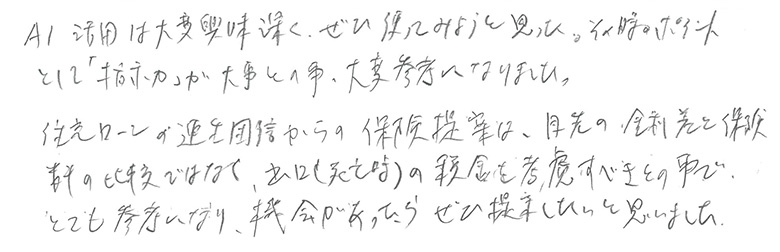 AI 活用は大変興味深く、ぜひ使ってみようと思った。その時のポイント
として「指示力」が大事との事、大変参考になりました。
住宅ローンの連生団信からの保険提案は、目先の金利差と保険
料の比較ではなく、出口(死亡時)の税金を考慮すべきとの事で、
とても参考になり、機会があったらぜひ提案したいと思いました。